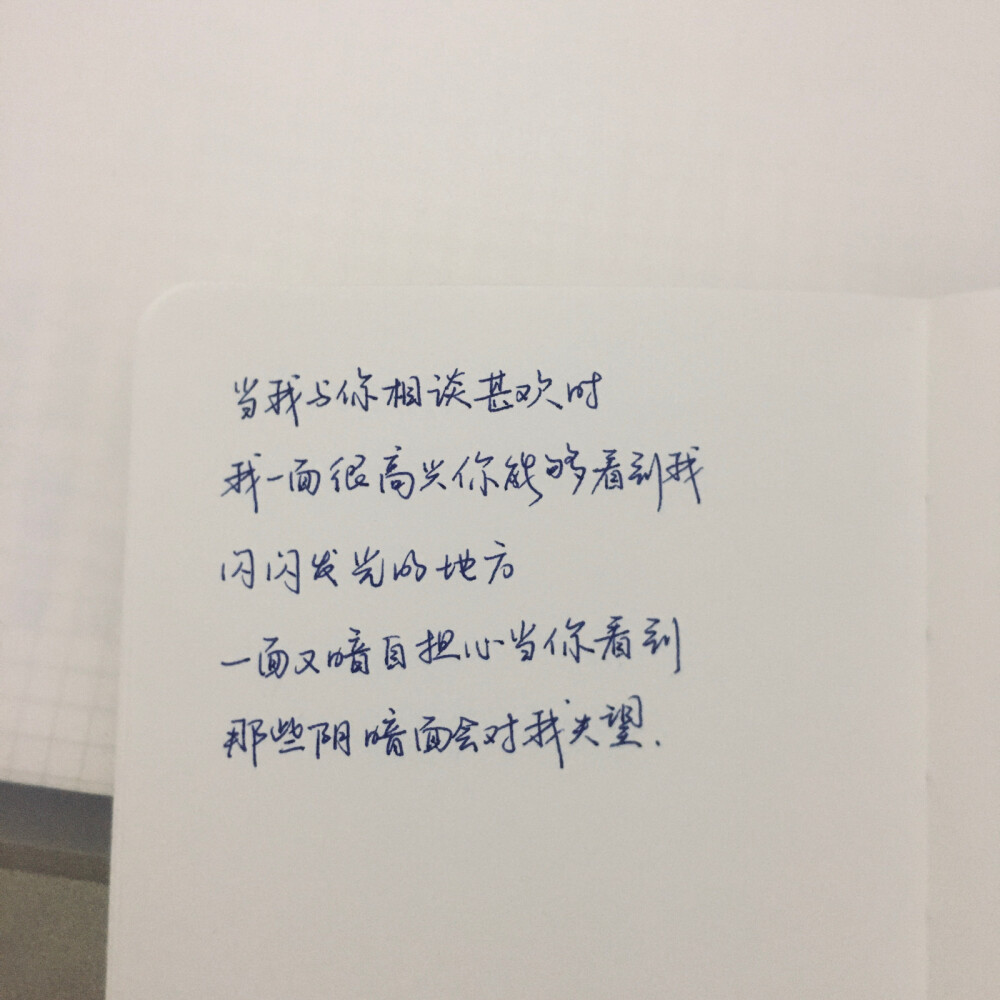 当我与你相谈甚欢时
我一面很高兴你能够看到我
闪闪发光的地方
一面又暗自担心当你看到
那些阴暗面会对我失望.